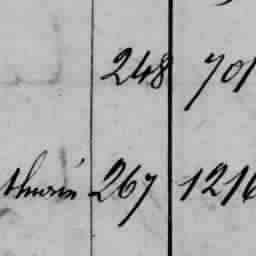 248 701
267 1216